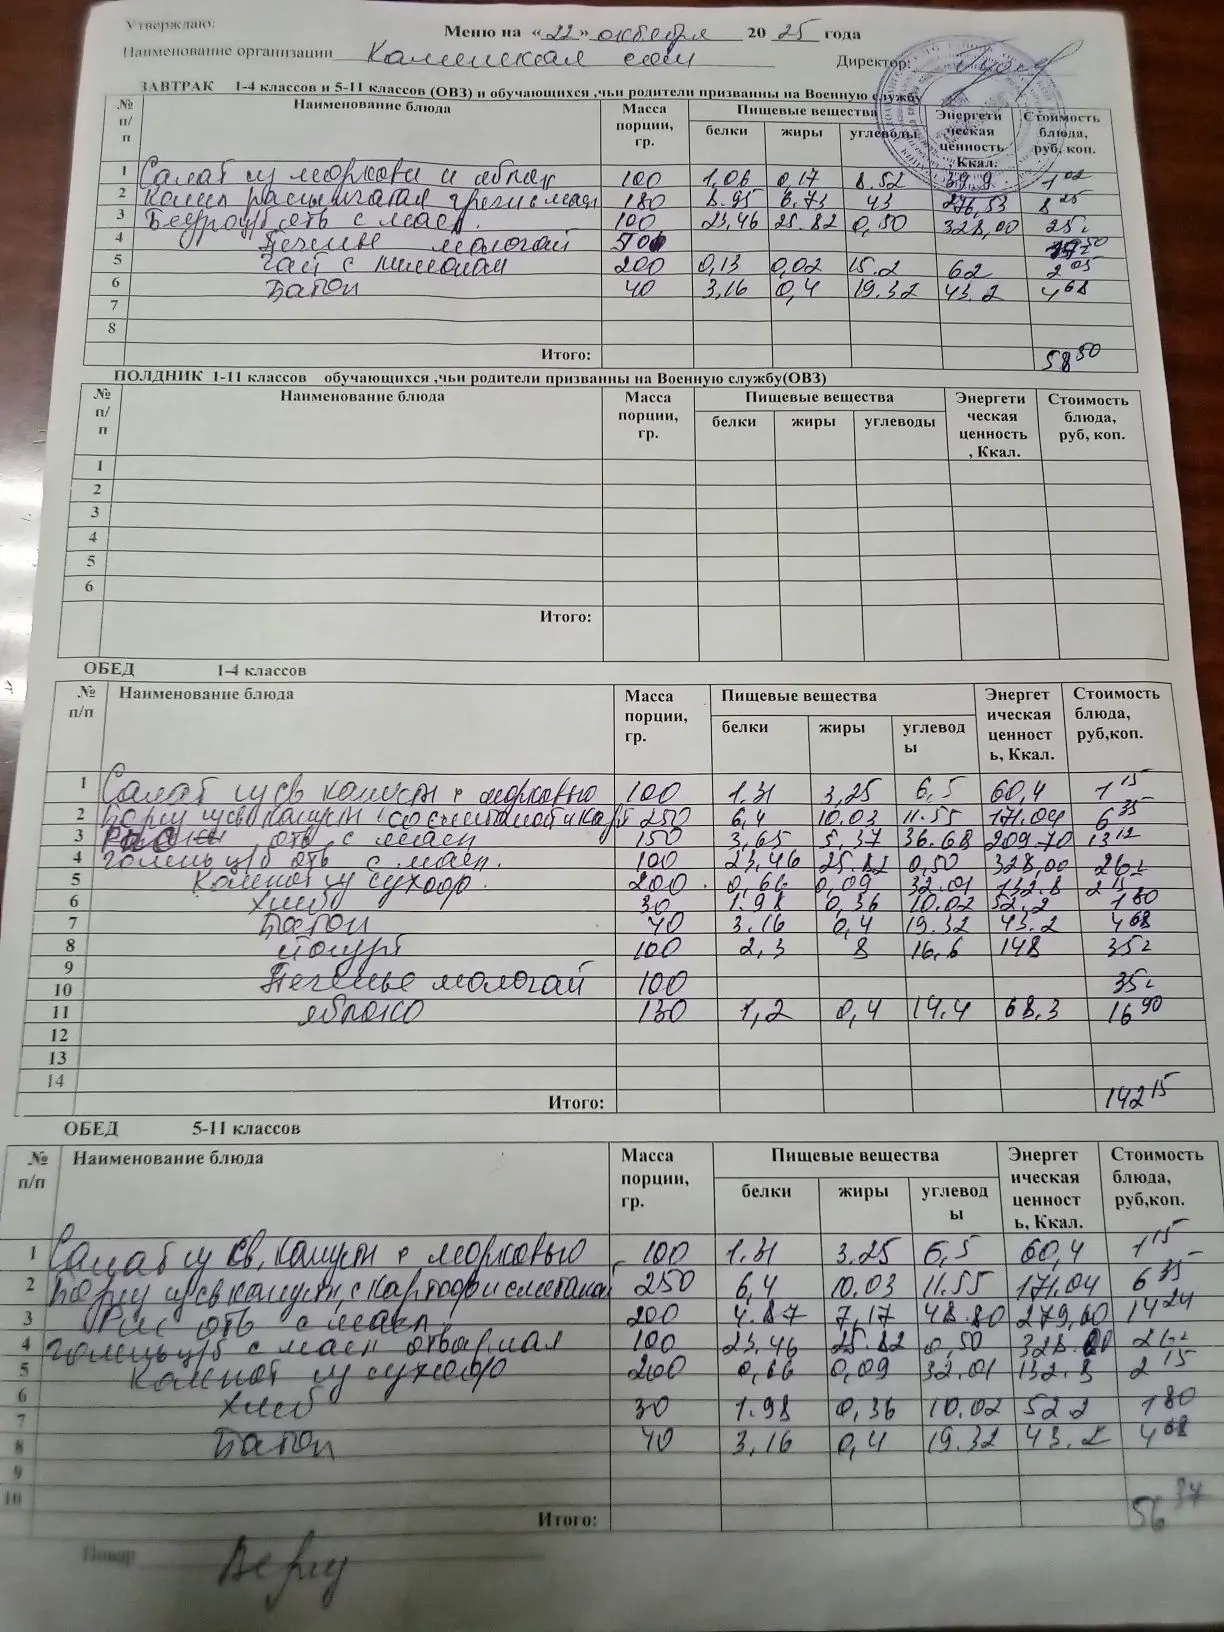 Утверждаю:
Меню на «22» октября 20 25 года
Наименование организации Каменская сош Директор:
ЗАВТРАК 1-4 классов и 5-11 классов (ОВЗ) и обучающихся ,чьи родители призванны на Военную службу
№ п/п Наименование блюда Масса порции, гр. Пищевые вещества Энергети ческая ценность , Ккал. Стоимость блюда, руб, коп.
белки жиры углеводы
1 Салат из моркови и яблок 100 1,06 0,17 8.52 39,9 1 02
2 Каша рассыпчатая гречис маел 180 8.95 6.73 43 276,53 8 25
3 Бедро ц/б отв с масл. 100 23,46 25.82 0,50 328,00 25 =
4 Печенье мологай 50
5 Чай с лимоном 200 0,13 0,02 15.2 62 2 05
6 Батон 40 3,16 0,4 19.32 43.2 4 68
7
8
Итого: 58 50
ПОЛДНИК 1-11 классов обучающихся ,чьи родители призванны на Военную службу(ОВЗ)
№ п/п Наименование блюда Масса порции, гр. Пищевые вещества Энергети ческая ценность , Ккал. Стоимость блюда, руб, коп.
белки жиры углеводы
1
2
3
4
5
6
Итого:
ОБЕД 1-4 классов
№ п/п Наименование блюда Масса порции, гр. Пищевые вещества Энергет ическая ценност ь, Ккал. Стоимость блюда, руб,коп.
белки жиры углевод ы
1 Салат из св капусты с морковью 100 1.31 3,25 6,5 60,4 1 15
2 Борщ из св капусты со сметаной и карт 250 6,4 10.03 11.55 171.04 6 35
3 Рис отв с масл 150 3,65 5,37 36.68 209.70 13 12
4 голень ц/б отв с масл. 100 23,46 25.82 0,50 328,00 26 =
5 Компот из сухофр. 200 0,66 0,09 32.01 132.8 2 15
6 Хлеб 30 1.98 0,36 10.02 52,2 1 80
7 Батон 40 3.16 0,4 19.32 43.2 4 68
8 йогурт 100 2,3 8 16,6 148 35 =
9
10 Печенье мологай 100 35 =
11 яблоко 130 1,2 0,4 14.4 68,3 16 90
12
13
14
Итого: 142 15
ОБЕД 5-11 классов
№ п/п Наименование блюда Масса порции, гр. Пищевые вещества Энергет ическая ценност ь, Ккал. Стоимость блюда, руб,коп.
белки жиры углевод ы
1 Салат из св. капусты с морковью 100 1.31 3.25 6,5 60,4 1 15
2 Борщ из св капусты, с картофр и сметаной 250 6,4 10.03 11.55 171.04 6 35
3 Рис отв с масл. 200 4.87 7,17 48.80 279,60 14 24
4 голень ц/б с масл отварная 100 23,46 25.82 0,50 328.00 26 =
5 Компот из сухофр 200 0,66 0,09 32.01 132.8 2 15
6 Хлеб 30 1.98 0,36 10.02 52.2 1 80
7
8 Батон 40 3,16 0,4 19.32 43.2 4 68
9
10
Итого: 56 37
Повар